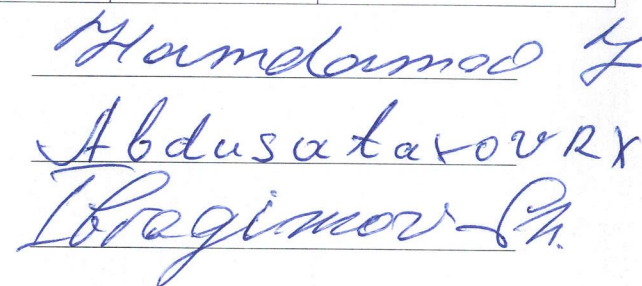 Hamdamov J
Abdusatarov R X
Ibragimov Sh.